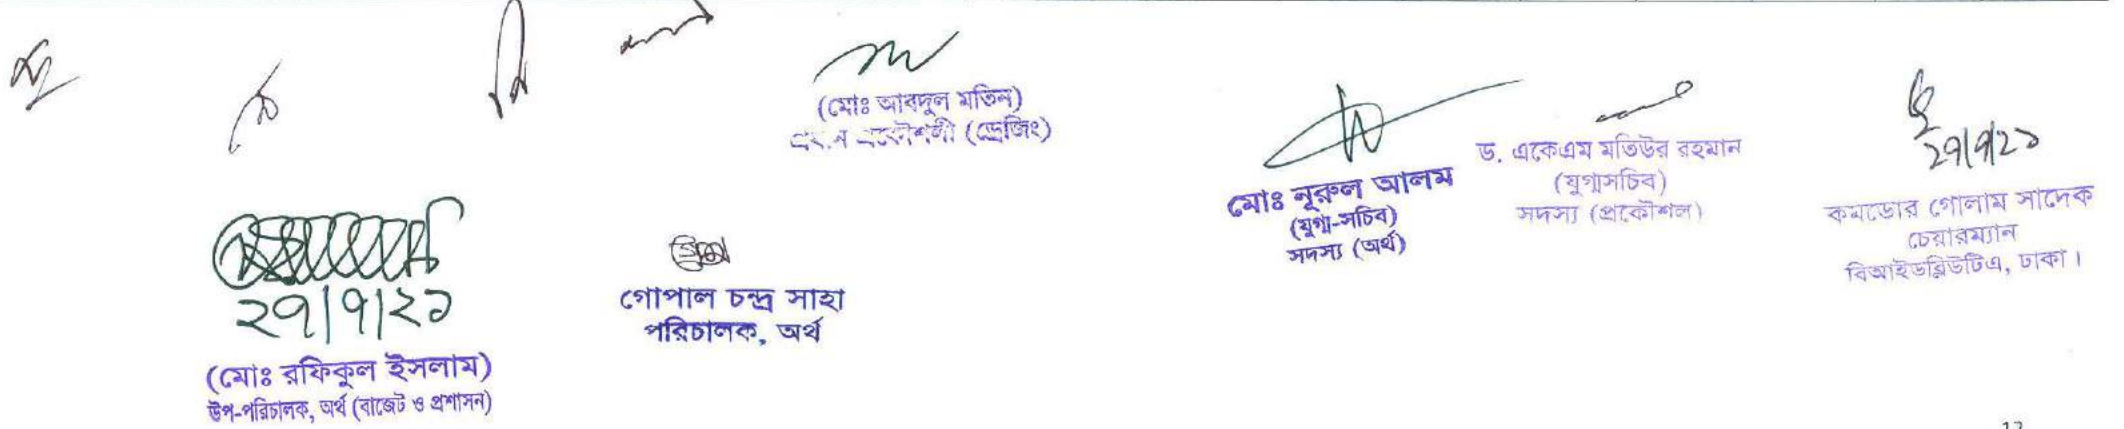 (মোঃ আবদুল মতিন)
প্রধান প্রকৌশলী (ড্রেজিং)
মোঃ নূরুল আলম
(যুগ্ম-সচিব)
সদস্য (অর্থ)
ড. একেএম মতিউর রহমান
(যুগ্মসচিব)
সদস্য (প্রকৌশল)
২৭/৭/২১
কমডোর গোলাম সাদেক
চেয়ারম্যান
বিআইডব্লিউটিএ, ঢাকা।
২৭/৭/২১
(মোঃ রফিকুল ইসলাম)
উপ-পরিচালক, অর্থ (বাজেট ও প্রশাসন)
গোপাল চন্দ্র সাহা
পরিচালক, অর্থ